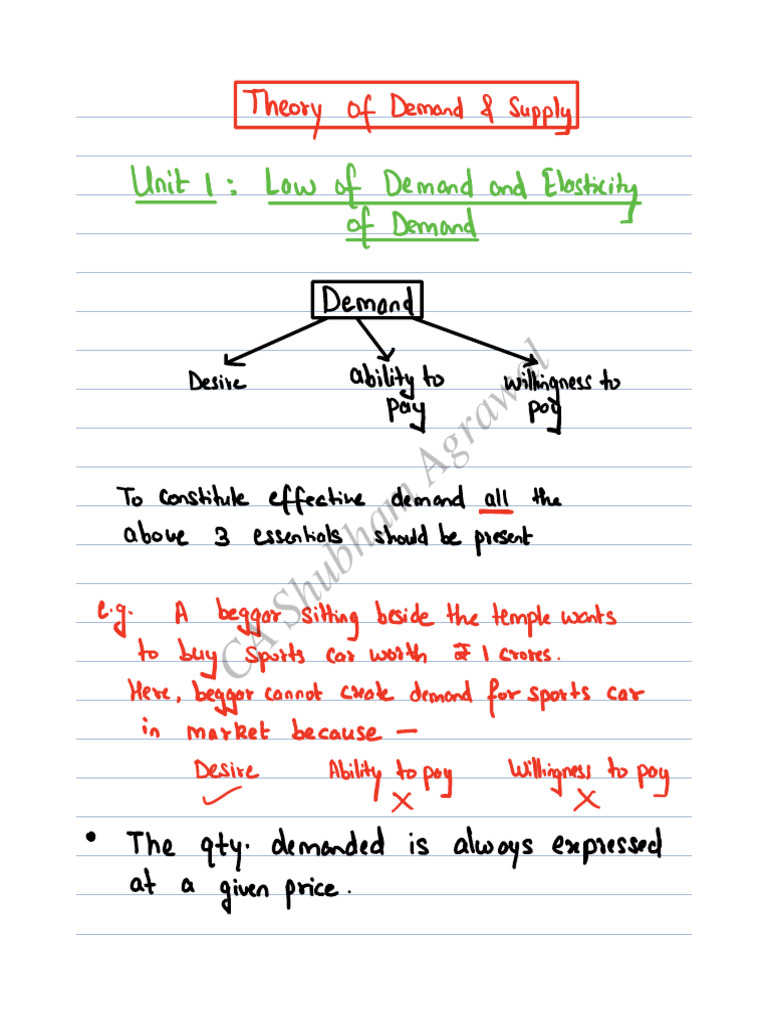 Theory of Demand & Supply
Unit 1 : Law of Demand and Elasticity
of Demand
Demand
Desire ability to willingness to
pay pay
To constitute effective demand all the
above 3 essentials should be present
e.g. A beggar sitting beside the temple wants
to buy sports car worth ₹ 1 crores.
Here, beggar cannot create demand for sports car
in market because —
Desire Ability to pay Willingness to pay
✓ X X
• The qty. demanded is always expressed
at a given price.
CA Shubham Agrawal